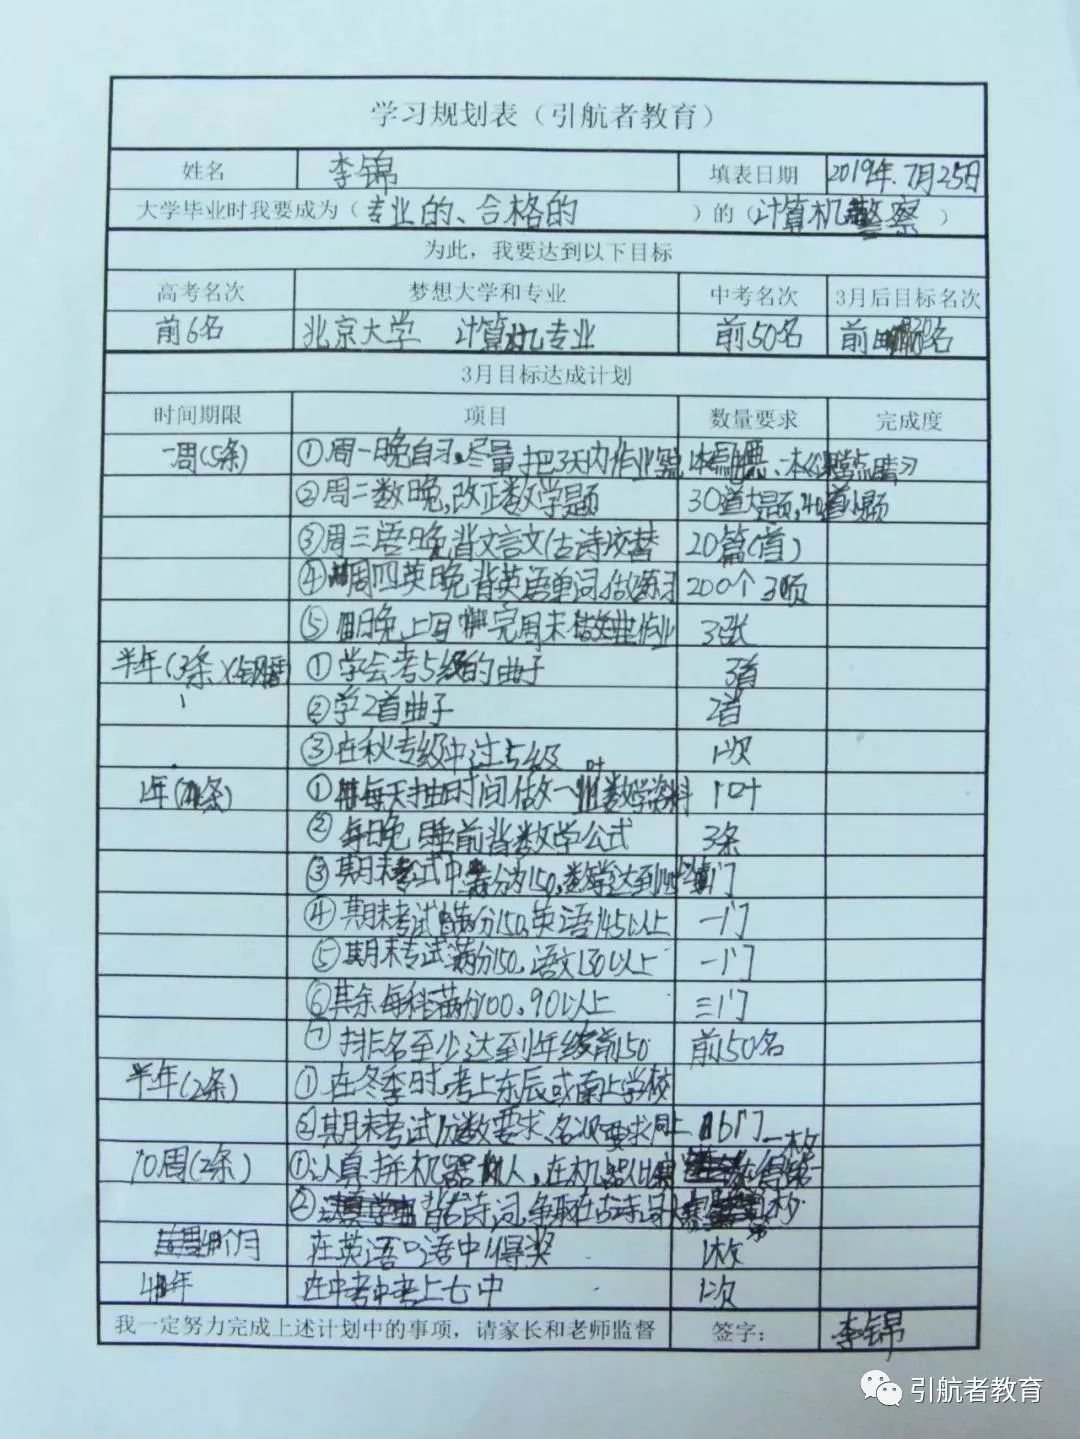 学习规划表（引航者教育）
姓名 李锦 填表日期 2019年.7月25日
大学毕业时我要成为（专业的、合格的 ）的（计算机警察）
为此，我要达到以下目标
高考名次 梦想大学和专业 中考名次 3月后目标名次
前6名 北京大学 计算机专业 前50名 前 名
3月目标达成计划
时间期限 项目 数量要求 完成度
一周(5条) ①周一晚自习,尽量把3天内作业
②周二数晚,改正数学题 30道大题,
③周三语晚,背文言文(古诗 20篇(首)
④周四英晚背英语单词,做练习 200个 3页
⑤ 晚上写完周末 作业 3张
半年(3条 ①学会考5级的曲子 3首
②学2首曲子 2首
③在秋专级中过5级 1次
1年( 条) ①每天抽时间做一 数学资料 1叶
②每晚睡前背数学公式 3条
③期末考试中满分为150,数学达到 门
④期末考试满分150,英语145以上 一门
⑤期末考试满分150,语文130以上 一门
⑥其余每科满分100,90以上 三门
⑦排名至少达到年级前50 前50名
半年(2条) ①在冬季时,考上东辰或南上学校
②期末考试分数要求、名次要求同上 6门
10周(2条) ①认真拼机器人,在机器人 一枚
② 背古诗词,争取在古诗词
个月 在英语口语中得奖 1枚
年 在中考中考上七中 1次
我一定努力完成上述计划中的事项，请家长和老师监督 签字： 李锦
引航者教育